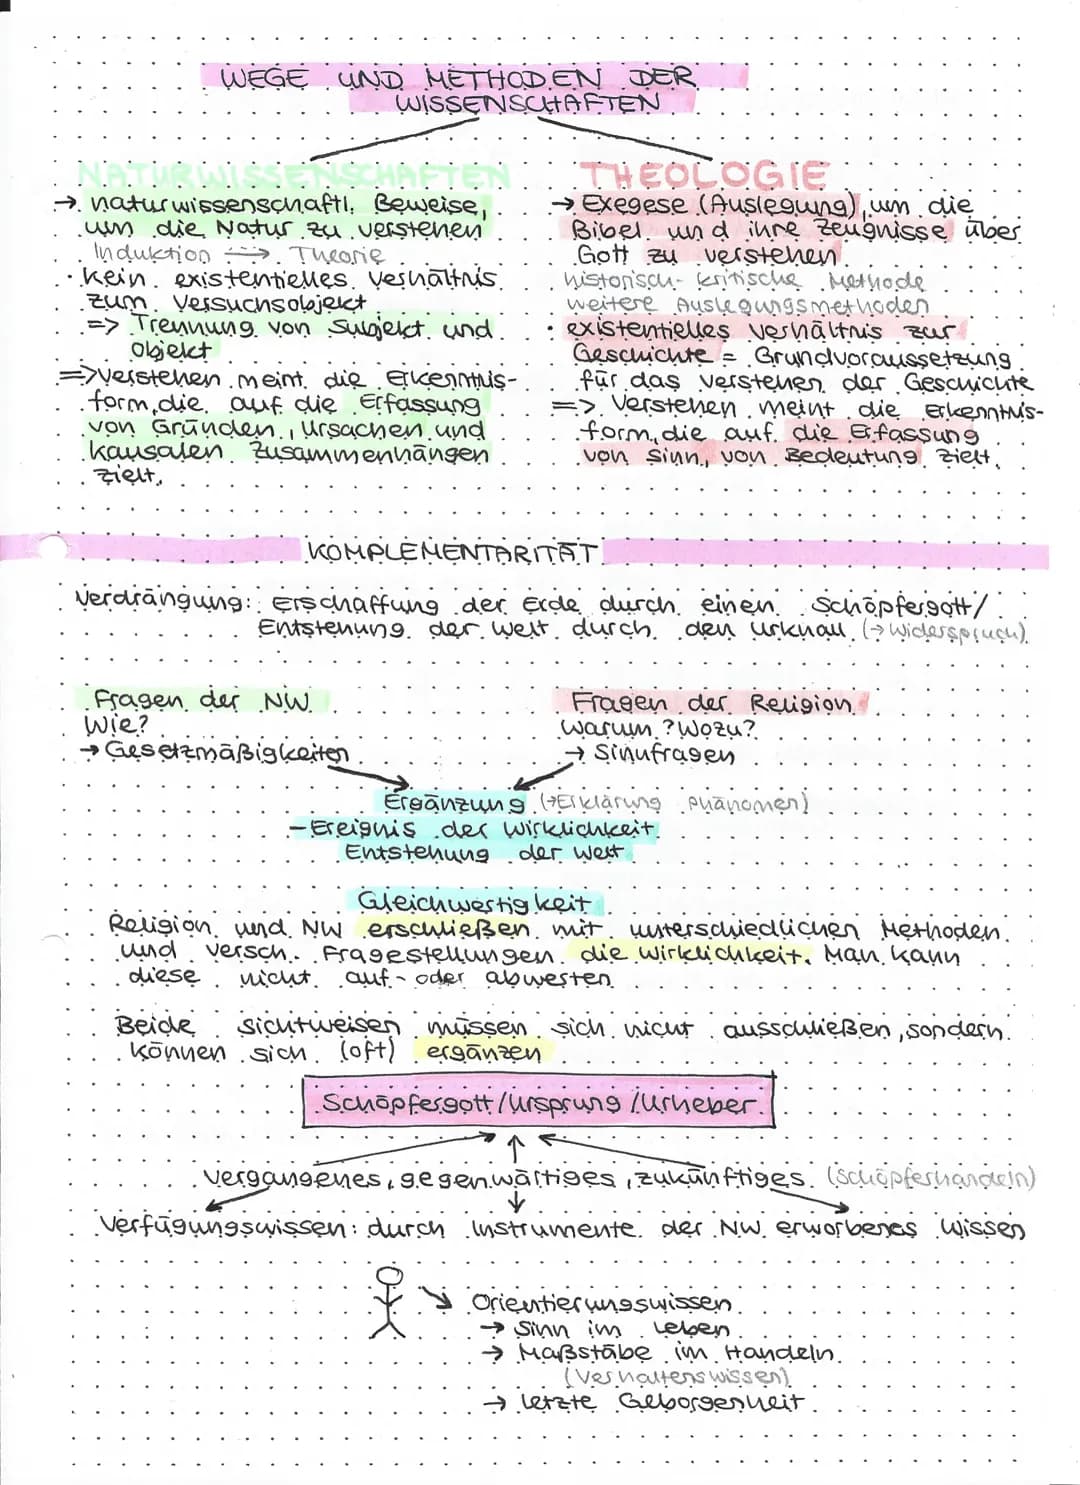 WEGE UND METHODEN DER
WISSENSCHAFTEN
NATURWISSENSCHAFTEN
→ naturwissenschaftl. Beweise,
um die Natur zu verstehen
Induktion ⇒ Theorie
· kein existentielles Verhältnis
zum Versuchsobjekt
=> Trennung von Subjekt und
Objekt
=> Verstehen meint die Erkenntnis-
form, die auf die Erfassung
von Gründen, Ursachen und
kausalen Zusammenhängen
zielt.
THEOLOGIE
→ Exegese (Auslegung), um die
Bibel und ihre Zeugnisse über
Gott zu verstehen
historisch-kritische Methode
weitere Auslegungsmethoden
· existentielles Verhältnis zur
Geschichte = Grundvoraussetzung
für das Verstehen der Geschichte
=> Verstehen meint die Erkenntnis-
form, die auf die Erfassung
von Sinn, von Bedeutung zielt.
KOMPLEMENTARITÄT
Verdrängung: Erschaffung der Erde durch einen Schöpfergott/
Entstehung der Welt durch den Urknall (→ Widerspruch)
Fragen der NW
Wie?
→ Gesetzmäßigkeiten
Fragen der Religion
Warum? Wozu?
→ Sinnfragen
Ergänzung (→ Erklärung Phänomen)
- Ereignis der Wirklichkeit
Entstehung der Welt
Gleichwertigkeit
Religion und NW erschließen mit unterschiedlichen Methoden
und versch. Fragestellungen die Wirklichkeit. Man kann
diese nicht auf- oder abwerten
Beide Sichtweisen müssen sich nicht ausschließen, sondern
können sich (oft) ergänzen
Schöpfergott/Ursprung/Urheber
vergangenes, gegenwärtiges, zukünftiges (Schöpferhandeln)
Verfügungswissen: durch Instrumente der NW erworbenes Wissen
Orientierungswissen
→ Sinn im Leben
→ Maßstäbe im Handeln
(Verhaltenswissen)
→ letzte Geborgenheit